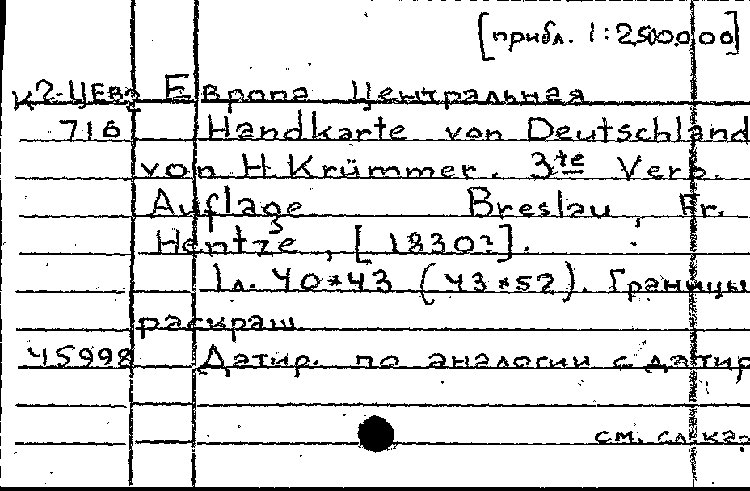 [прибл. 1:2500000]
К2-ЦЕв2 Европа Центральная
716 Handkarte von Deutschland
von H Krümmer. 3te Verb.
Auflage Breslau, Fr.
Hentze, [1830?].
1л. 40*43 (43*52). Границы
раскраш.
45998 Датир. по аналогии с датир
см. сл. кар